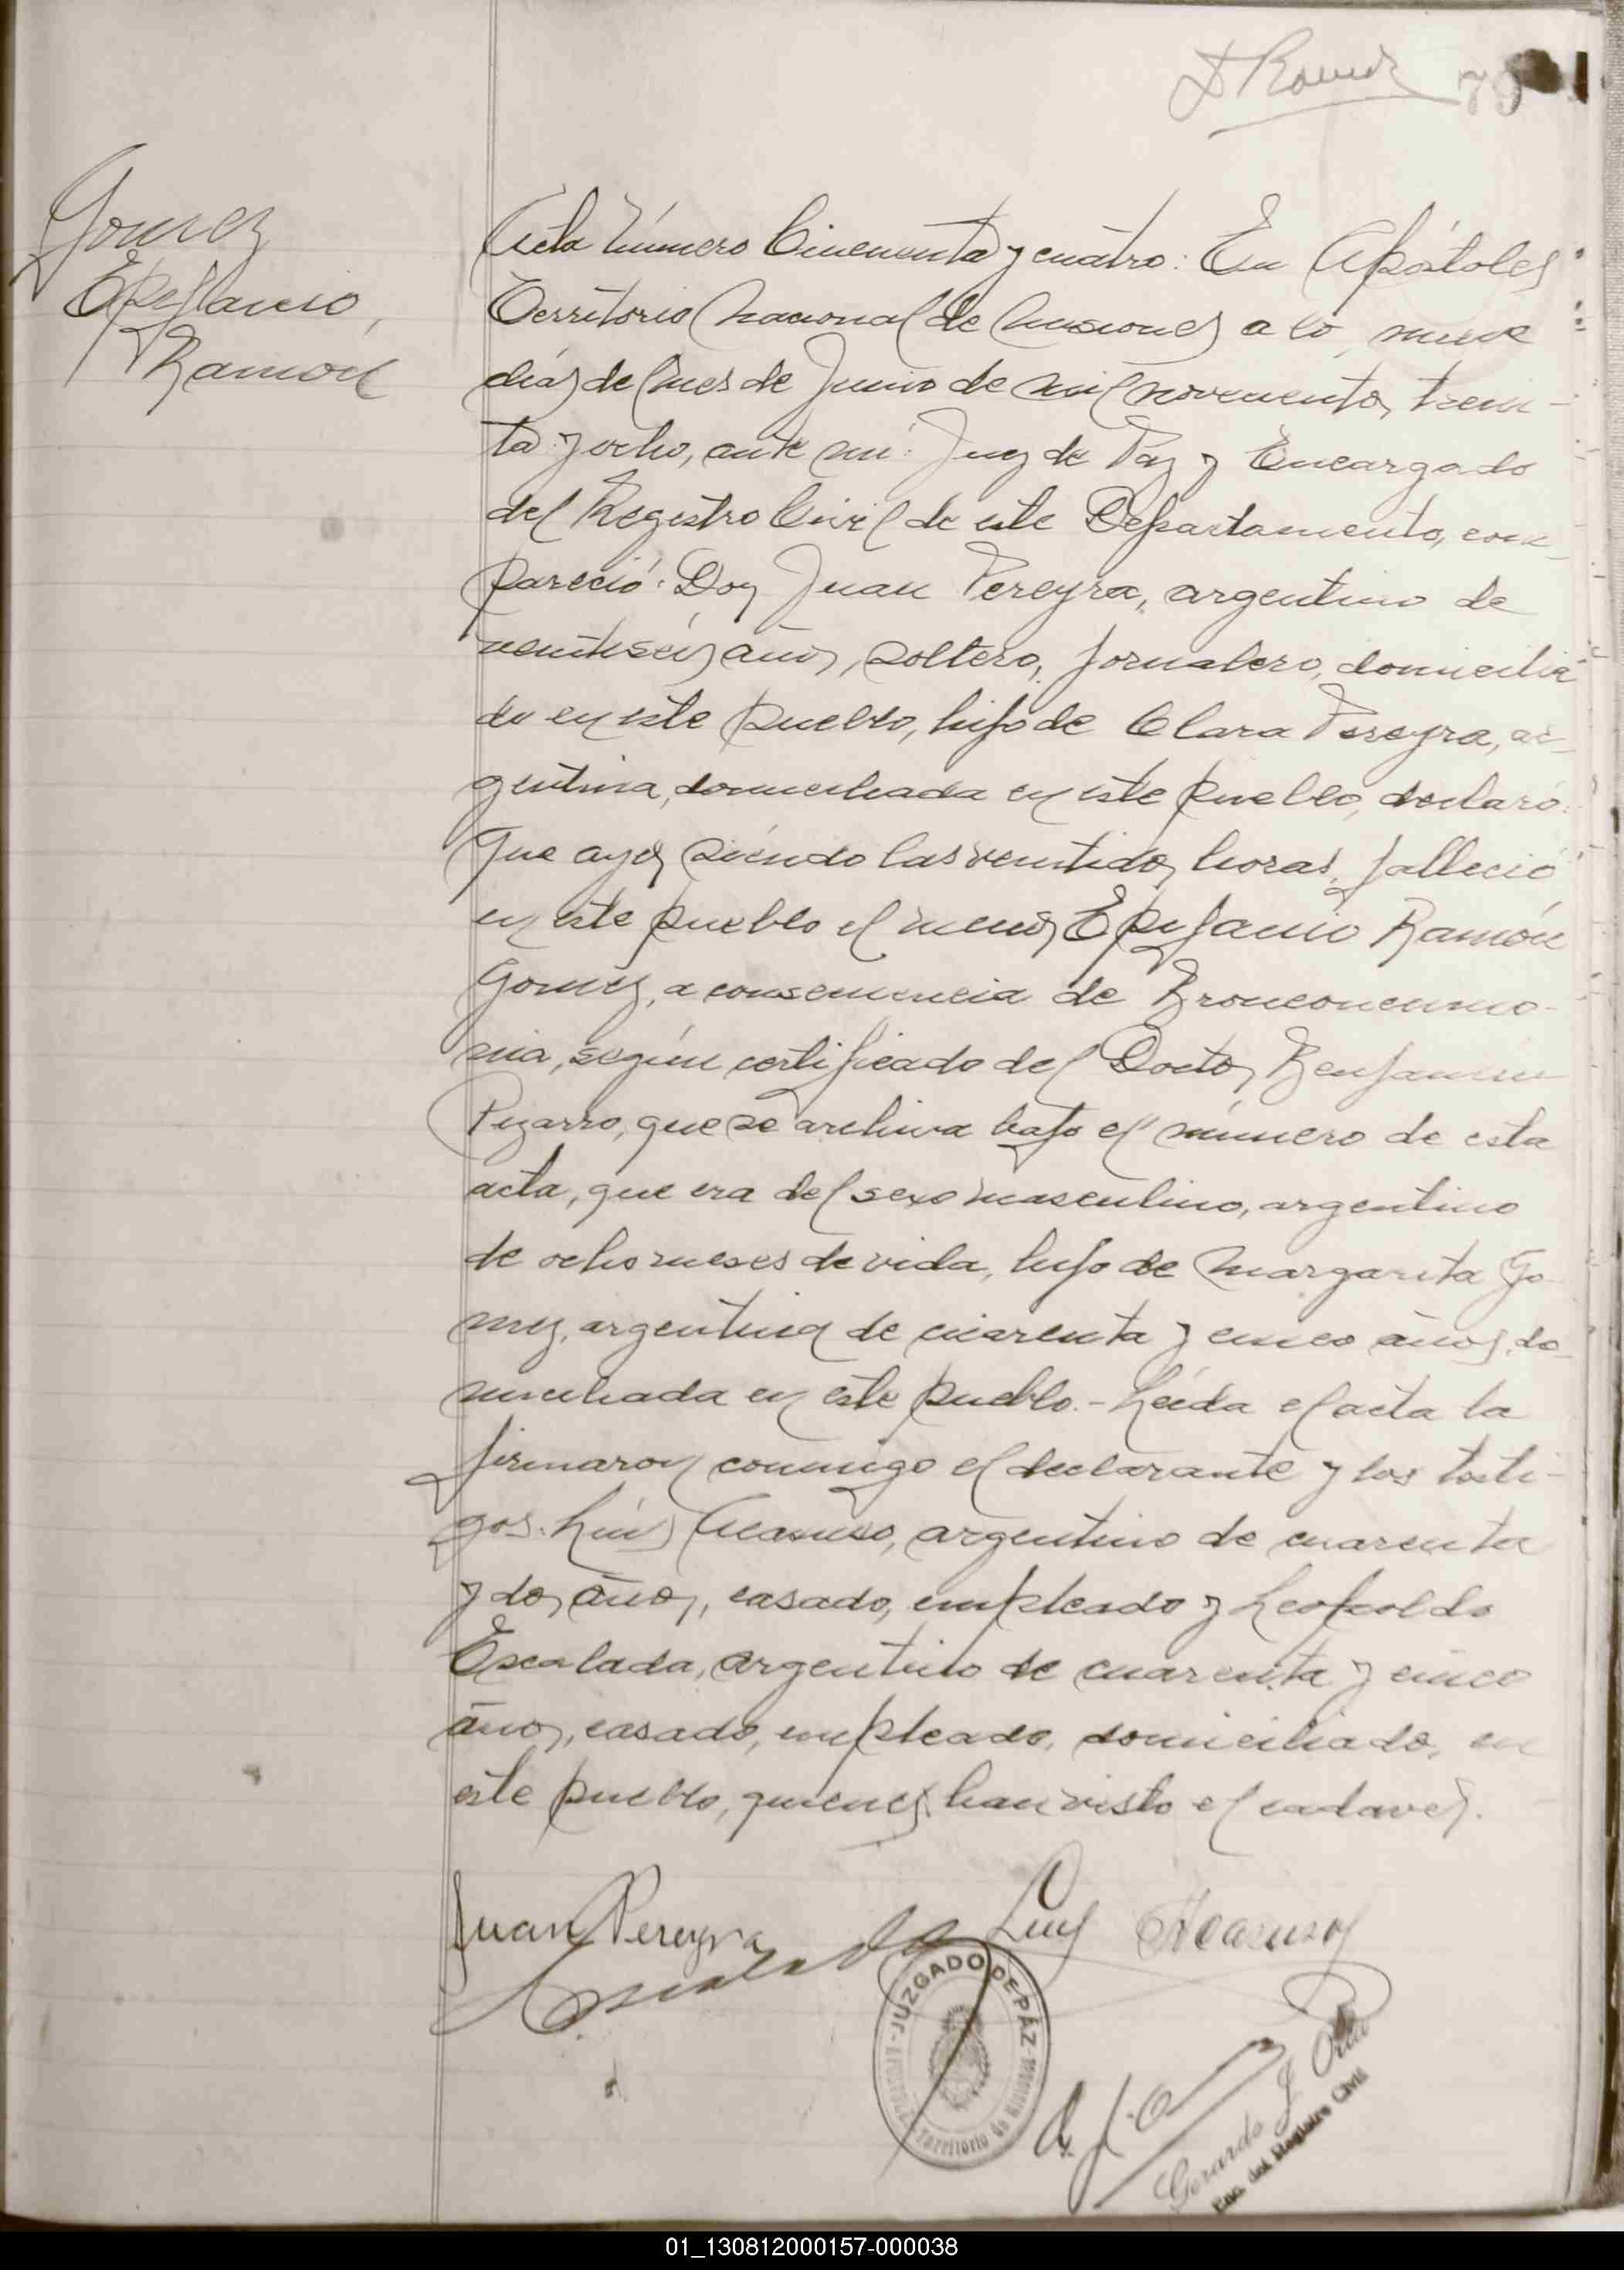 79
Gomez
Epifanio,
Ramón
Acta número Cincuenta y cuatro: En Apóstoles
Territorio nacional de Misiones a los nueve
días del mes de Junio de mil novecientos trein-
ta y ocho, ante mí: Juez de Paz y Encargado
del Registro Civil de este Departamento, com-
pareció: Don Juan Pereyra, argentino de
veintiseis años, soltero, jornalero, domicilia-
do en este pueblo, hijo de Clara Pereyra, ar-
gentina, domiciliada en este pueblo, declaró:
Que ayer siendo las veintidos horas, falleció
en este pueblo el menor Epifanio Ramón
Gomez, a consecuencia de Bronconeumo-
nia, según certificado del Doctor Benjamin
Pizarro, que se archiva bajo el número de esta
acta, que era del sexo masculino, argentino
de ocho meses de vida, hijo de Margarita Go-
mez, argentina de cuarenta y cinco años, do-
miciliada en este pueblo.- Leída el acta la
firmaron conmigo el declarante y los testi-
gos: Luis Acasuso, argentino de cuarenta
y dos años, casado, empleado y Leopoldo
Escalada, argentino de cuarenta y cinco
años, casado, empleado, domiciliados en
este pueblo, quienes han visto el cadaver.
Juan Pereyra
Luis Acasuso
Escalada
JUZGADO DE PAZ
Territorio de Misiones
Gerardo J.
Enc. del Registro Civil
01_130812000157-000038